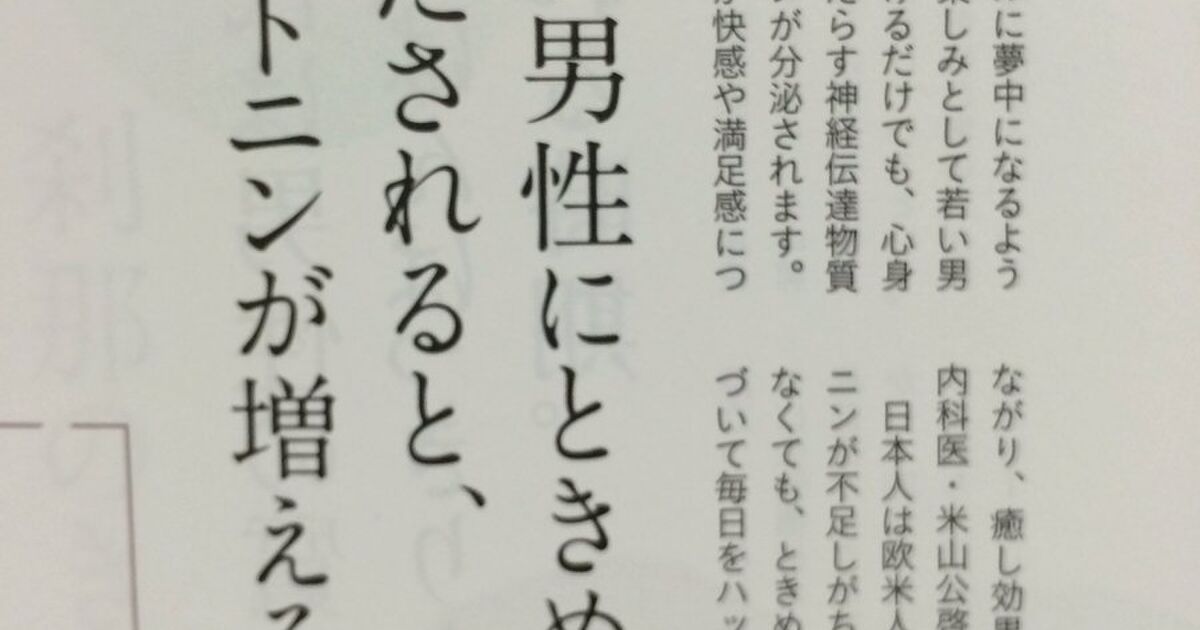 に夢中になるよう
楽しみとして若い男
けるだけでも、心身
たらす神経伝達物質
ンが分泌されます。
が快感や満足感につ
ながり、癒し効果
内科医・米山公啓
日本人は欧米人
ニンが不足しがち
なくても、ときめ
づいて毎日をハッ
男性にときめ
たされると、
トニンが増える